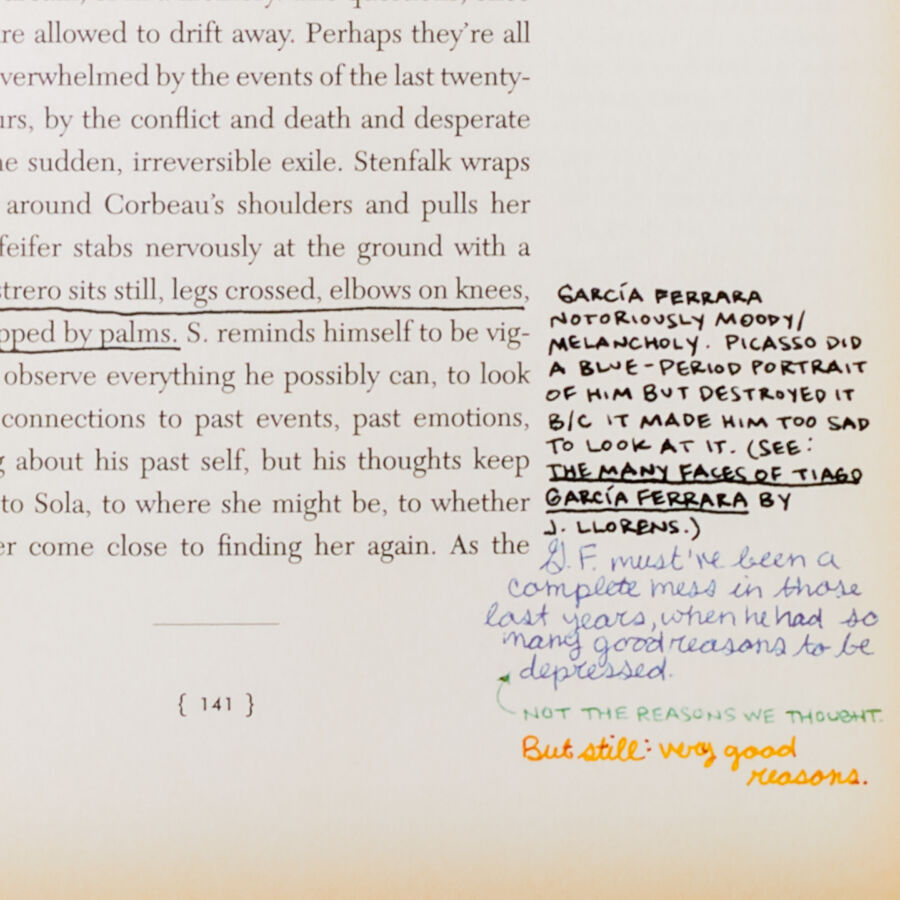 re allowed to drift away. Perhaps they're all
verwhelmed by the events of the last twenty-
urs, by the conflict and death and desperate
ne sudden, irreversible exile. Stenfalk wraps
around Corbeau's shoulders and pulls her
feifer stabs nervously at the ground with a
strero sits still, legs crossed, elbows on knees,
pped by palms. S. reminds himself to be vig-
observe everything he possibly can, to look
connections to past events, past emotions,
g about his past self, but his thoughts keep
to Sola, to where she might be, to whether
er come close to finding her again. As the
{ 141 }
GARCÍA FERRARA
NOTORIOUSLY MOODY/
MELANCHOLY. PICASSO DID
A BLUE-PERIOD PORTRAIT
OF HIM BUT DESTROYED IT
B/C IT MADE HIM TOO SAD
TO LOOK AT IT. (SEE:
THE MANY FACES OF TIAGO
GARCÍA FERRARA BY
J. LLORENS.)
G.F. must've been a
complete mess in those
last years, when he had so
many good reasons to be
depressed.
NOT THE REASONS WE THOUGHT.
But still: very good
reasons.